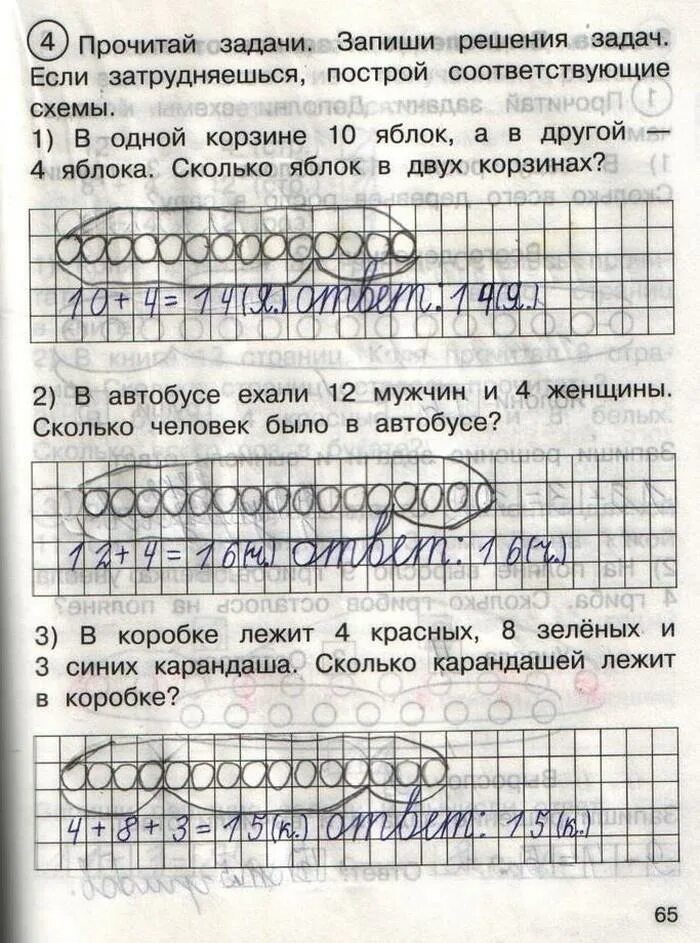 4 Прочитай задачи. Запиши решения задач.
Если затрудняешься, построй соответствующие
схемы.
1) В одной корзине 10 яблок, а в другой —
4 яблока. Сколько яблок в двух корзинах?
10 + 4 = 14 (Я.) ответ: 14 (Я.)
2) В автобусе ехали 12 мужчин и 4 женщины.
Сколько человек было в автобусе?
12 + 4 = 16 (ч.) ответ: 16 (ч.)
3) В коробке лежит 4 красных, 8 зелёных и
3 синих карандаша. Сколько карандашей лежит
в коробке?
4 + 8 + 3 = 15 (к.) ответ: 15 (к.)
65